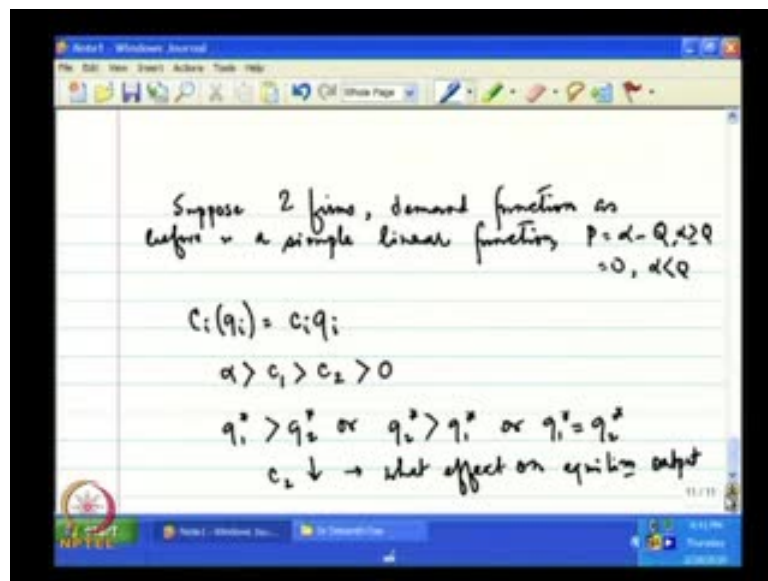 Note1 - Windows Journal
File Edit View Insert Actions Tools Help
Whole Page
Suppose 2 firms, demand function as
before is a simple linear function, P = α - Q, α ≥ Q
= 0, α < Q
Ci(qi) = ciqi
α > c1 > c2 > 0
q1* > q2* or q2* > q1* or q1* = q2*
c2 ↓ → what effect on equilbm output
11/11
NPTEL
start
Note1 - Windows Jou...
Thursday